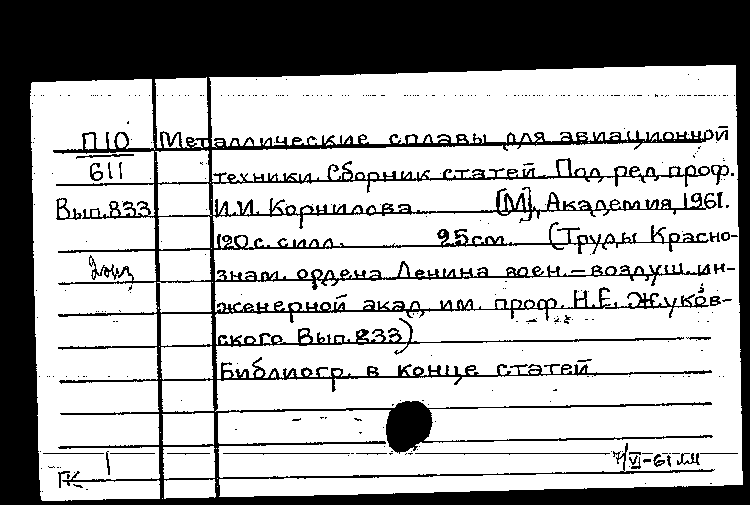 П10 Металлические сплавы для авиационной
611 техники. Сборник статей. Под ред. проф.
Вып.833 И.И. Корнилова. [М], Академия, 1961.
120 с. с илл. 25см. (Труды Красно-
2 экз знам. ордена Ленина воен.-воздуш. ин-
женерной акад. им. проф. Н.Е. Жуков-
ского Вып.833).
Библиогр. в конце статей.
ГК 1 VI-61